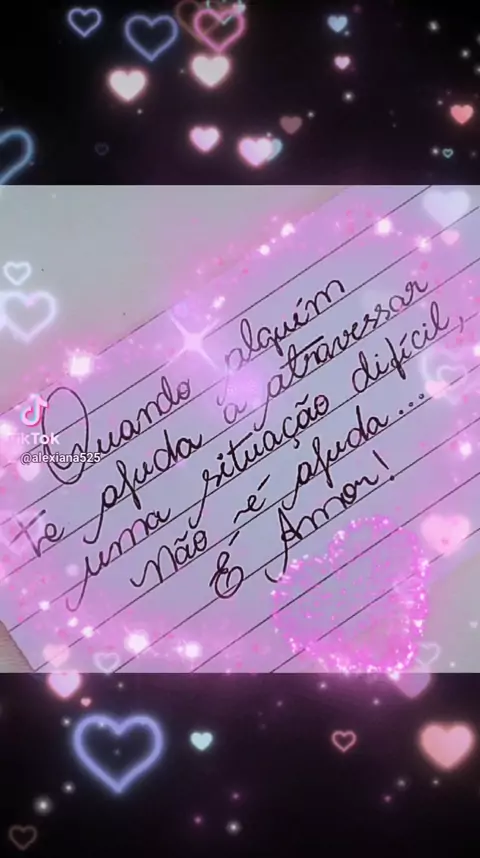 Quando alguém
te ajuda a atravessar
uma situação difícil,
não é ajuda...
É Amor!
TikTok
@alexiana525